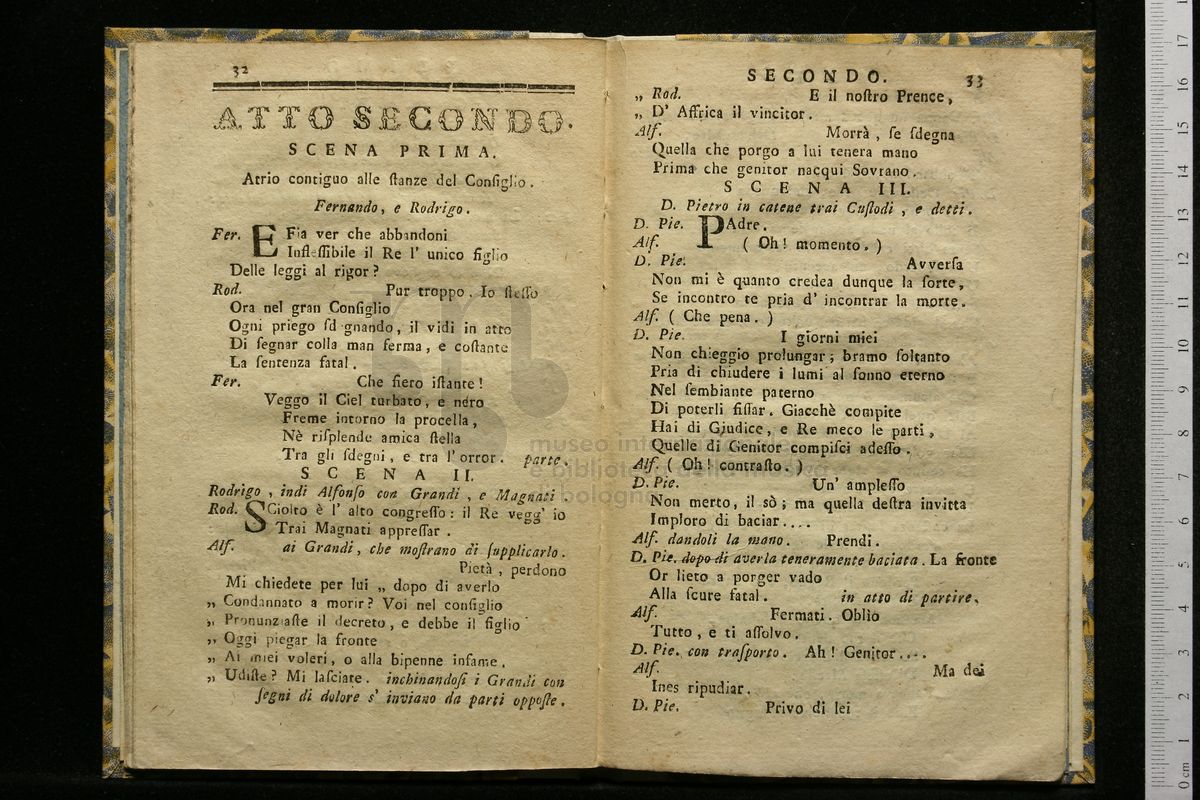 32
ATTO SECONDO.
SCENA PRIMA.
Atrio contiguo alle ſtanze del Conſiglio.
Fernando, e Rodrigo.
Fer. E Fia ver che abbandoni
Infleſſibile il Re l' unico figlio
Delle leggi al rigor?
Rod. Pur troppo. Io ſteſſo
Ora nel gran Conſiglio
Ogni priego ſdegnando, il vidi in atto
Di ſegnar colla man ferma, e coſtante
La ſentenza fatal.
Fer. Che fiero iſtante!
Veggo il Ciel turbato, e nero
Freme intorno la procella,
Nè riſplende amica ſtella
Tra gli ſdegni, e tra l'orror. parte.
SCENA II.
Rodrigo, indi Alfonſo con Grandi, e Magnati
Rod. SCiolto è l' alto congreſſo: il Re vegg' io
Trai Magnati appreſſar.
Alf. ai Grandi, che moſtrano di ſupplicarlo.
Pietà, perdono
Mi chiedete per lui „ dopo di averlo
„ Condannato a morir? Voi nel conſiglio
„ Pronunziaſte il decreto, e debbe il figlio
„ Oggi piegar la fronte
„ Ai miei voleri, o alla bipenne infame.
„ Udiſte? Mi laſciate. inchinandoſi i Grandi con
ſegni di dolore s' inviano da parti oppoſte.
SECONDO. 33
„ Rod. E il noſtro Prence,
„ D' Affrica il vincitor.
Alf. Morrà, ſe ſdegna
Quella che porgo a lui tenera mano
Prima che genitor nacqui Sovrano.
SCENA III.
D. Pietro in catene trai Cuſtodi, e detti.
D. Pie. PAdre.
Alf. (Oh! momento.)
D. Pie. Avverſa
Non mi è quanto credea dunque la ſorte,
Se incontro te pria d' incontrar la morte.
Alf. (Che pena.)
D. Pie. I giorni miei
Non chieggio prolungar; bramo ſoltanto
Pria di chiudere i lumi al ſonno eterno
Nel ſembiante paterno
Di poterli fiſſar. Giacchè compite
Hai di Giudice, e Re meco le parti,
Quelle di Genitor compiſci adeſſo.
Alf. (Oh! contraſto.)
D. Pie. Un' ampleſſo
Non merto, il sò; ma quella deſtra invitta
Imploro di baciar....
Alf. dandoli la mano. Prendi.
D. Pie. dopo di averla teneramente baciata. La fronte
Or lieto a porger vado
Alla ſcure fatal. in atto di partire.
Alf. Fermati. Oblìo
Tutto, e ti aſſolvo.
D. Pie. con traſporto. Ah! Genitor....
Alf. Ma dei
Ines ripudiar.
D. Pie. Privo di lei